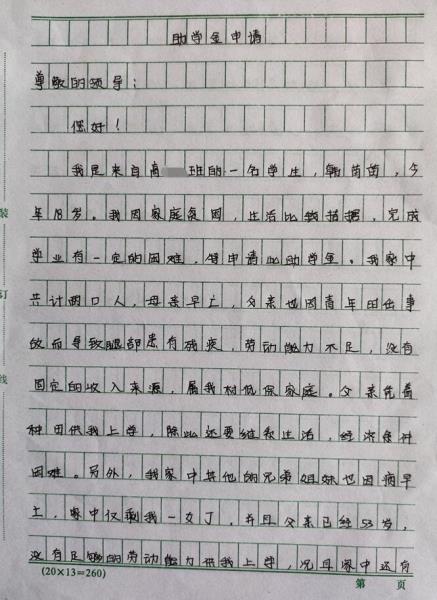 助学金申请
尊敬的领导：
您好！
我是来自高 班的一名学生，韩茵茵，今
年18岁。我因家庭贫困，生活比较拮据，完成
学业有一定的困难，特申请此助学金。我家中
共计两口人，母亲早亡，父亲也因青年时出事
故而导致腿部患有残疾，劳动能力不足，没有
固定的收入来源，属我村低保家庭。父亲凭着
种田供我上学，除此还要维系生活，经济条件
困难。另外，我家中其他的兄弟姐妹也因病早
亡，家中仅剩我一女丁，并且父亲已经53岁，
没有足够的劳动能力供我上学，况且家中还有
(20×13=260)
第 页
装
订
线